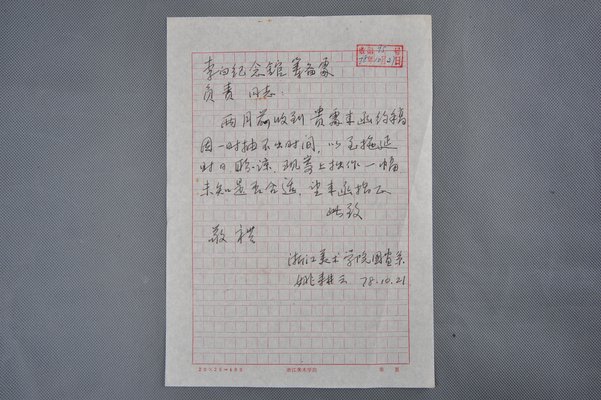 收文 95 号
78年10月27日
李白纪念馆筹备处
负责同志：
两月前收到贵处来函约稿
因一时抽不出时间，以至拖延
时日盼谅，现寄上拙作一幅
未知是否合适，望来函指示
此致
敬礼
浙江美术学院国画系
姚耕云 78.10.21
20×20=400
浙江美术学院
第 页